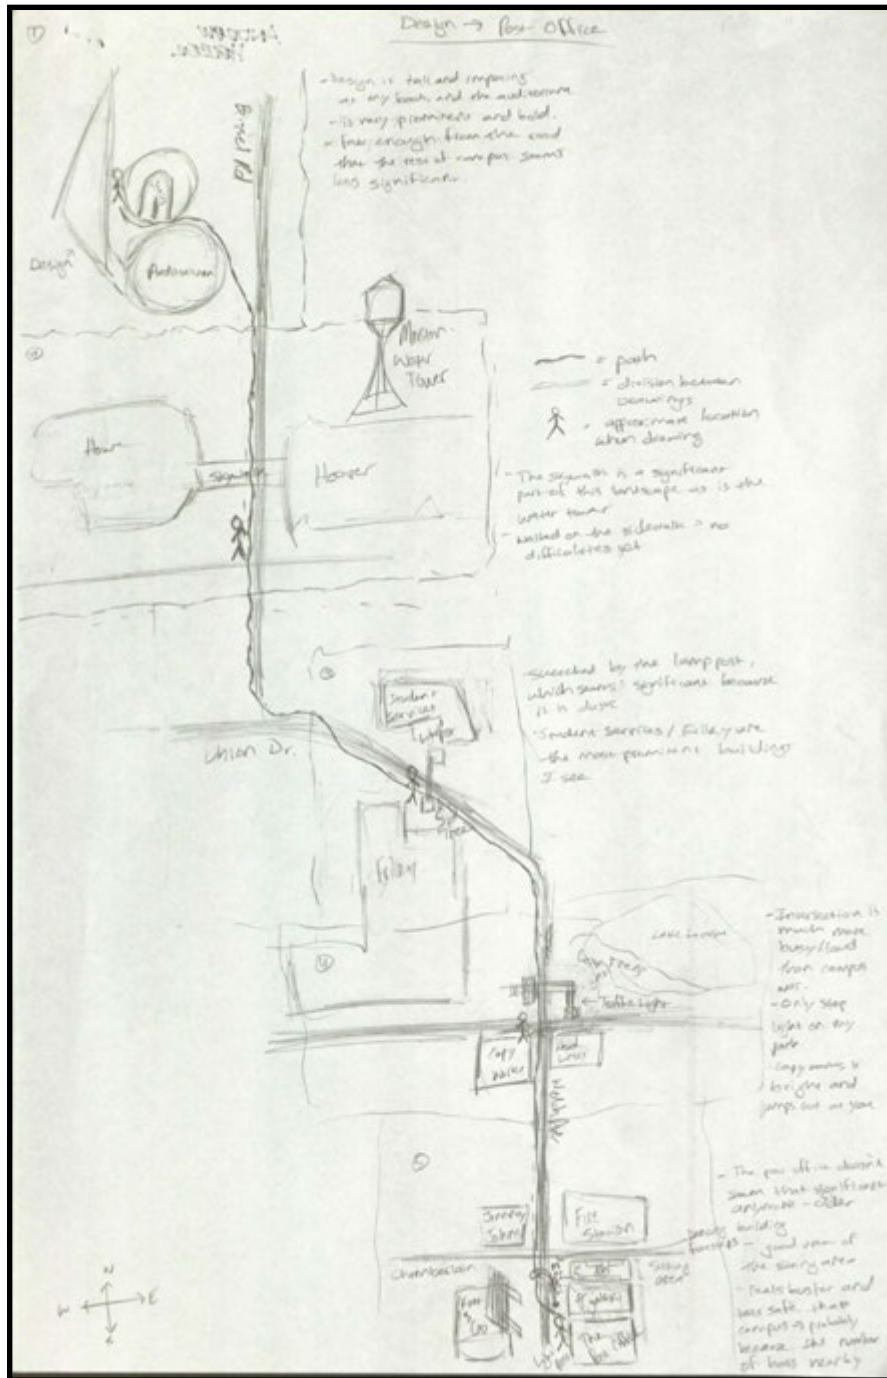 ①
Design → Post Office
- Design is tall and imposing
as my back, and the auditorium
- is very prominent and bold.
- far enough from the road
that the rest of campus seems
less significant.
Bissel Rd
Design
Auditorium
②
Marston
Water
Tower
Howe
Skywalk
Hoover
= path
= division between
drawings
= approximate location
when drawing
- The skywalk is a significant
part of this landscape as is the
water tower
- Walked on the sidewalk = no
difficulties yet
③
Student
Services
Union Dr.
- Sketched by the lamp post,
which seems significant because
it is dusk
- Student Services / Friley are
the most prominent buildings
I see
Friley
④
Lake Laverne
← Traffic Light
Copy
Works
Welch Ave
- Intersection is
much more
busy/loud
than campus
was.
- Only stop
light on my
path
- Copy works is
bright and
jumps out at you
⑤
Jimmy
Johns
Fire
Station
Chamberlain
Sitting
area
Kum
&
Go
The
Post Office
- The post office doesn't
seem that significant
anymore - older
building
- good view of
the sitting area
- Feels busier and
less safe than
campus → probably
because the number
of bars nearby
N
W
E
S